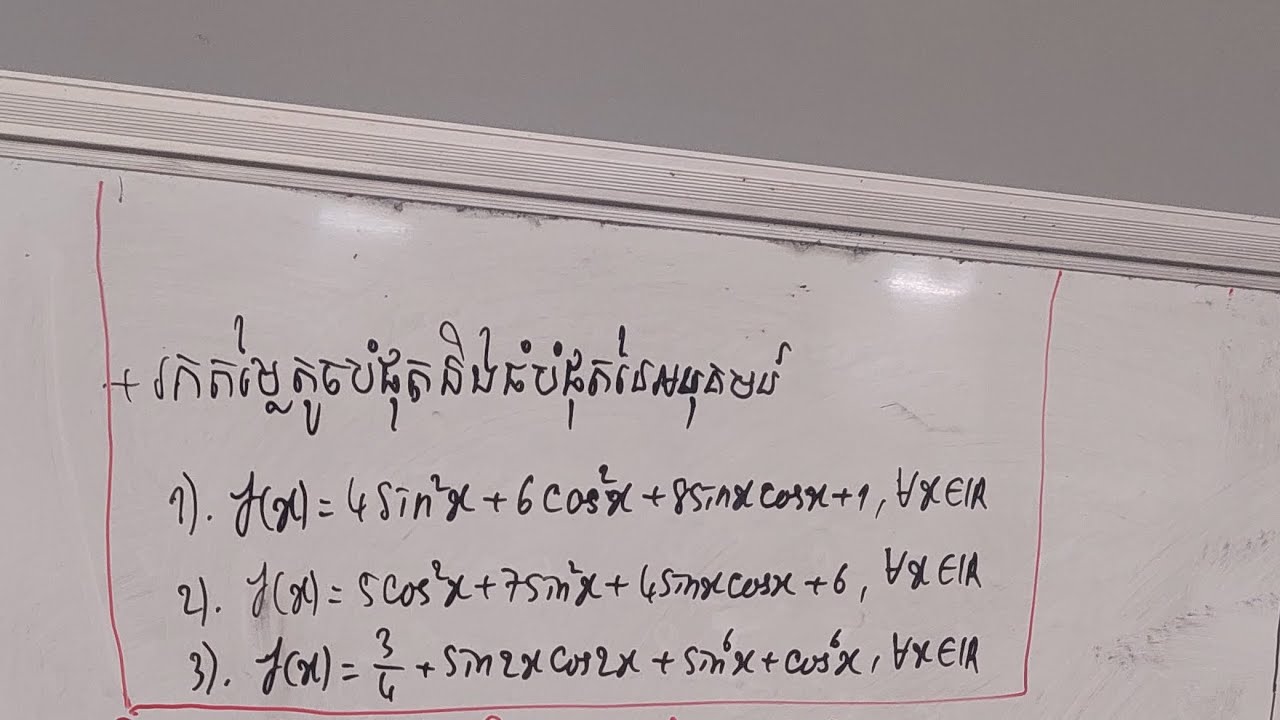 + រកតម្លៃតូចបំផុតនិងធំបំផុតនៃអនុគមន៍
1). f(x) = 4 sin²x + 6 cos²x + 8 sinx cosx + 1 , ∀x∈IR
2). f(x) = 5 cos²x + 7 sin²x + 4 sinx cosx + 6 , ∀x∈IR
3). f(x) = 3/4 + sin2x cos2x + sin⁶x + cos⁶x , ∀x∈IR